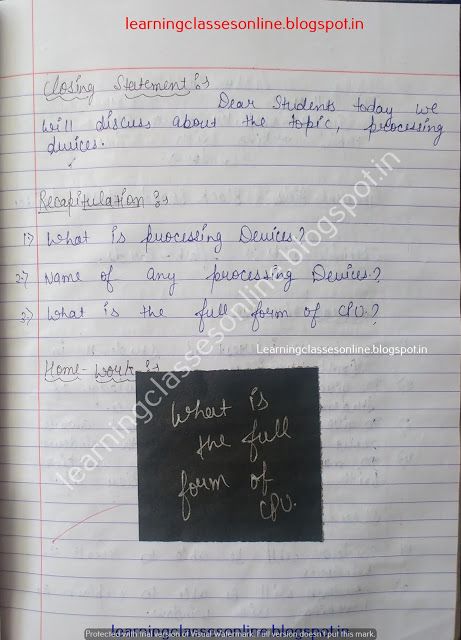 learningclassesonline.blogspot.in
Closing Statement :-
Dear Students today we
will discuss about the topic, processing
devices.
Recapitulation :-
1) What is processing Devices.?
2) Name of any processing Devices.?
3) What is the full form of CPU.?
Learningclassesonline.blogspot.in
Home-work :-
What is
the full
form of
CPU.
learningclassesonline.blogspot.in
Protected with trial version of Visual Watermark. Full version doesn't put this mark.
learningclassesonline.blogspot.in